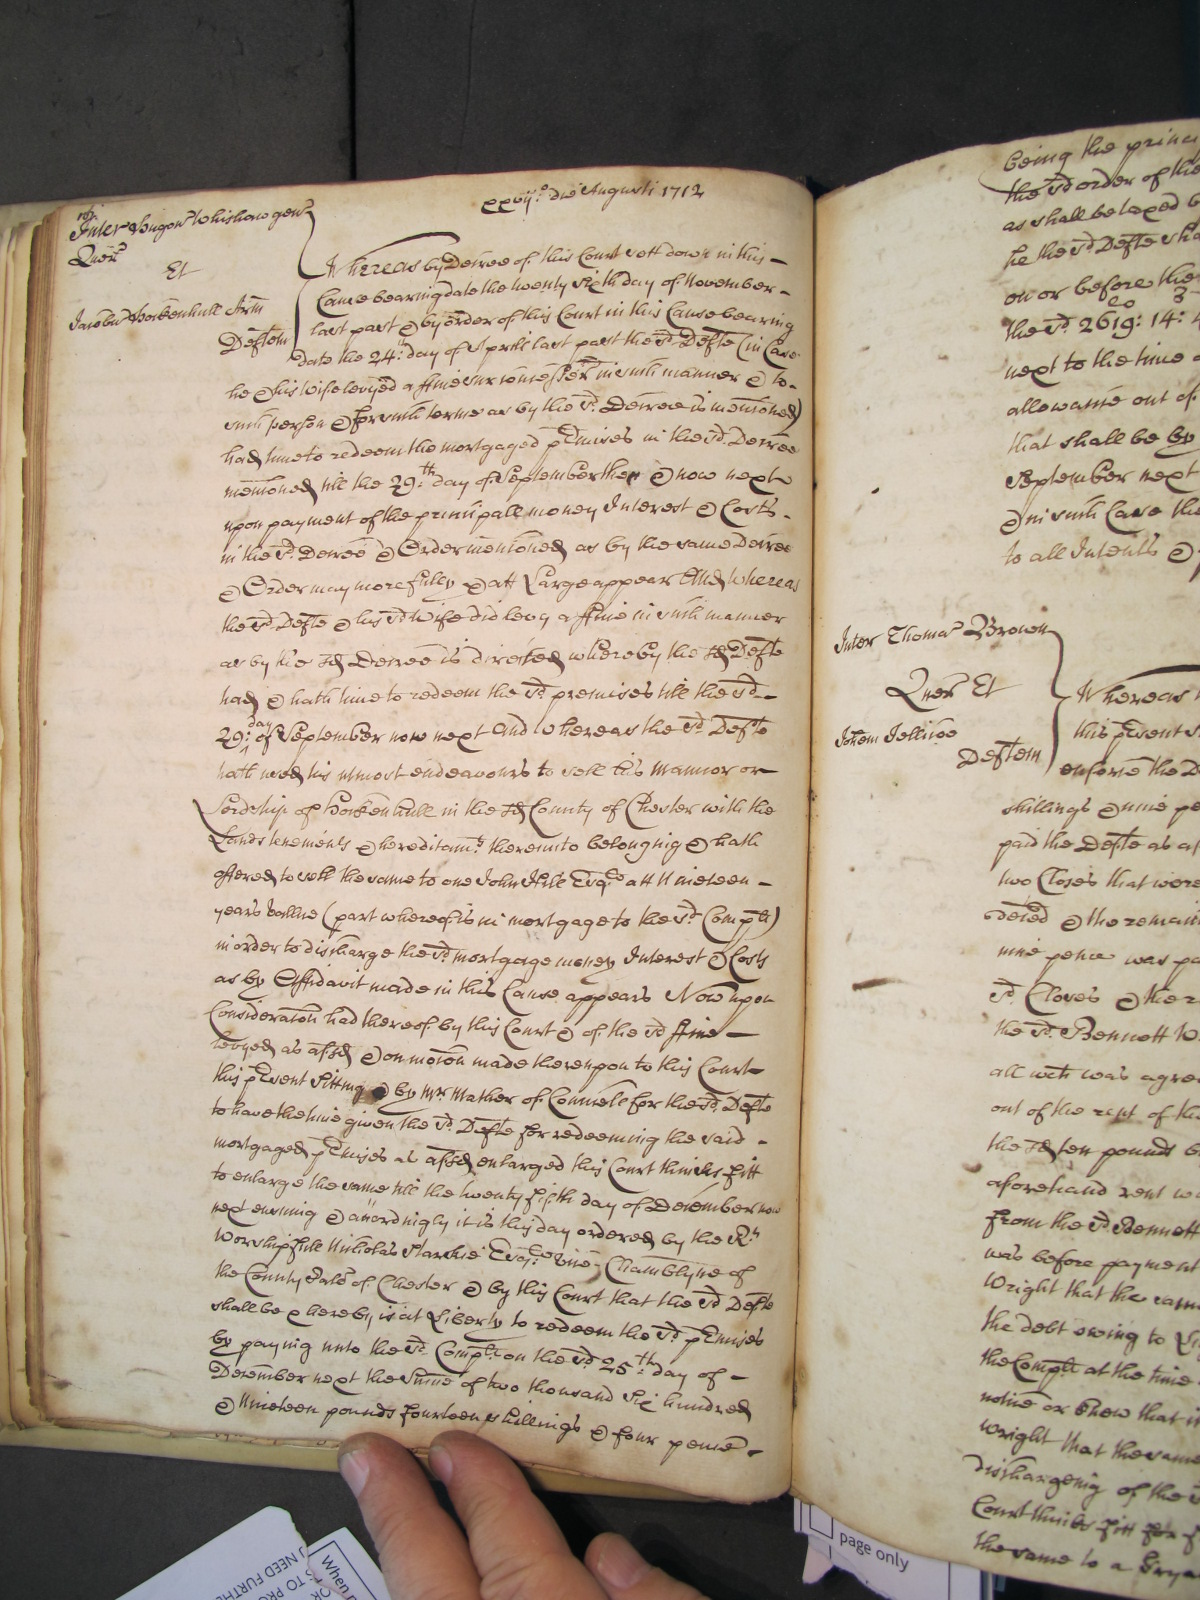 xxvij.o die Augusti 1712
Inter Hugon Whishaw gen
Quer
Et
Jacobu Hockenhull Arm
Deftem
Whereas by Decree of this Court sett down in this
Cause bearing date the twenty sixth day of November
last past & by order of this Court in this Cause bearing
date the 24th day of Aprill last past the sd Defte (in Case
he & his Wife levyed a ffine in such manner & to
such person & for such terme as by the sd Decree is mencioned)
had time to redeem the mortgaged pEmises in the sd Decree
mencioned till the 29th day of September then & now next
upon payment of the principall money Interest & Costs
in the sd Decree & Order mencioned as by the same Decree
& Order may more fully & att Large appear And whereas
the sd Defte & his sd Wife did levy a ffine in such manner
as by the sd Decree is directed whereby the sd Defte
had & hath time to redeem the sd premises till the sd
29th day of September now next And whereas the sd Defte
hath used his utmost endeavours to sell his Mannor or
Lordship of Hockenhull in the sd County of Chester with the
Lands tenements & hereditamts thereunto belonging & hath
offered to sell the same to one John Esqr att Nineteen
years vallue (part whereof is in mortgage to the sd Complt)
in order to discharge the sd mortgage money Interest & Costs
as by Affidavit made in this Cause appears Now upon
Consideracon had thereof by this Court & of the sd ffine
levyed as afsd & on mocon made thereupon to this Court
this pEsent sitting by Mr Mather of Councele for the sd Defte
to have the time given the sd Defte for redeeming the said
mortgaged pEmises as afsd enlarged this Court thinks fitt
to enlarge the same till the twenty fifth day of December now
next ensuing & accordingly it is this day ordered by the Rt
Worshipfull Nicholas Starkie Esqr vice Chamblyne of
the County Palt of Chester & by this Court that the sd Defte
shall be & hereby is at Liberty to redeem the sd pEmises
by paying unto the sd Complt on the sd 25th day of
December next the Sume of two thousand Six hundred
& Nineteen pounds fourteen shillings & four pence
being the princi
the sd order of the
as shall be taxed b
he the sd Defte sha
on or before the
the sd 2619: 14: 4
next to the time
allowance out of
that shall be by
September next
& in such Case the
to all Intents &
Inter Thomas Brown
Quer Et
Johem Jellicoe
Deftem
Whereas
this pEsent S
enforce the D
shillings & nine pe
paid the Defte as a
two Closes that were
& the remain
nine pence was pa
sd Closes & the
the sd Bennett
all wch was agre
out of the rent of th
the sd ten pounds b
aforehand rent w
from the sd Bennett
was before payment
Wright that the same
the debt owing to
the Complt at the time
notice or shew that it
Wright that the same
dischargeing of the
Court thinks fitt for
the same to a
page only
When
TO PR
NEED FURTHE